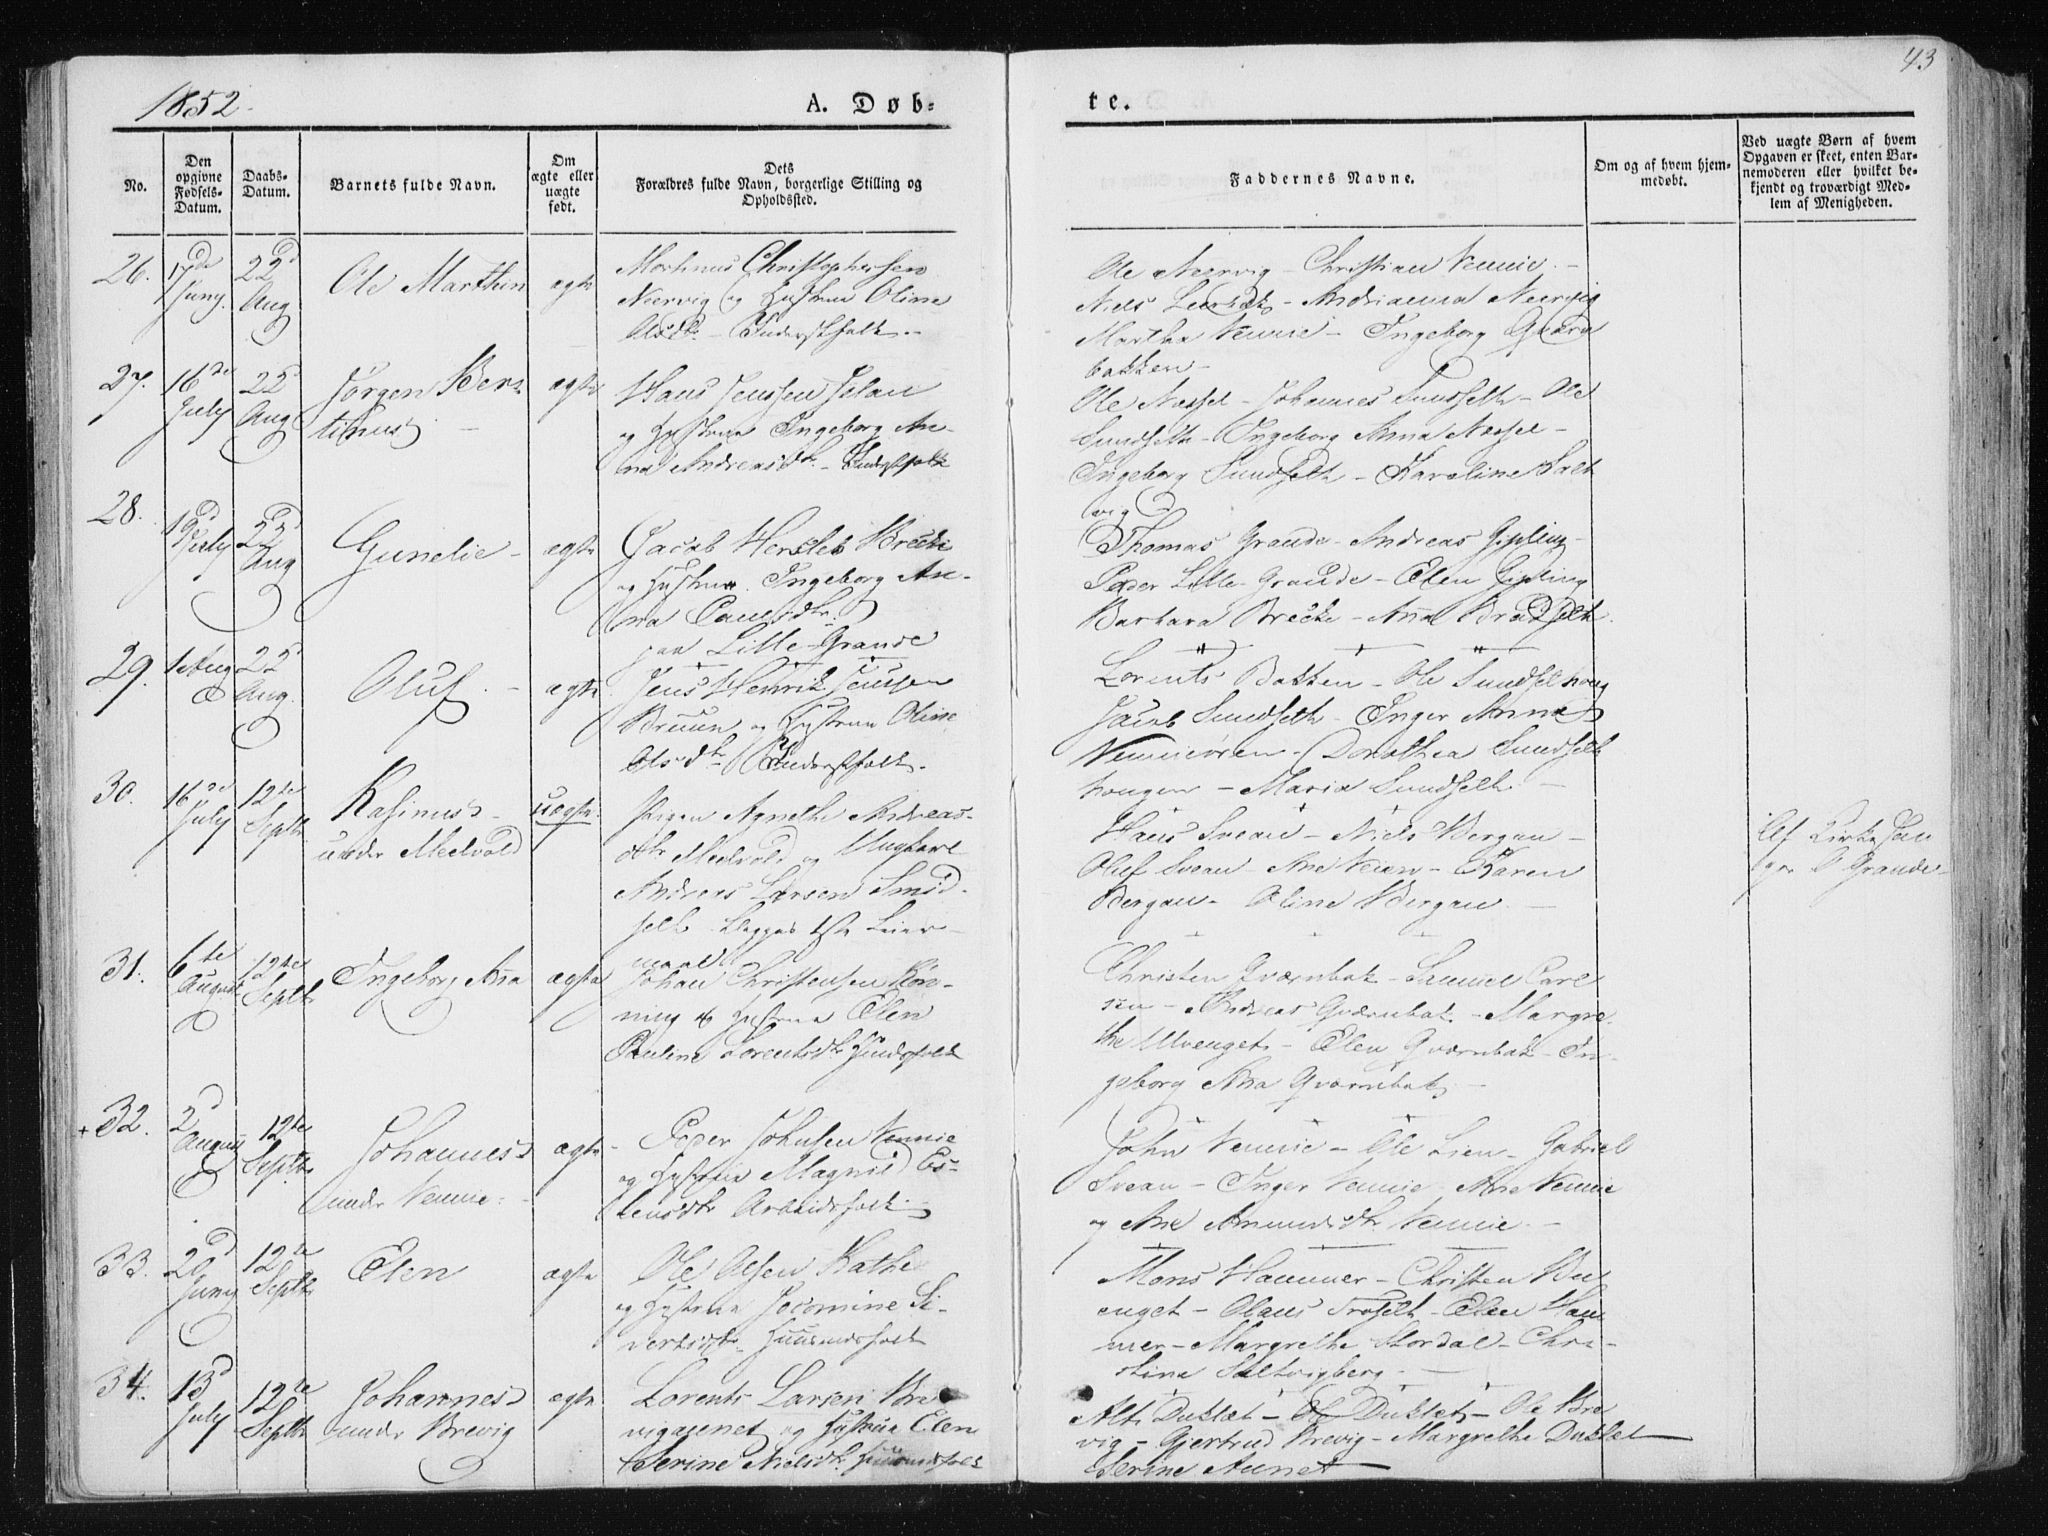 43
1852.
A. Døb-
te.
No.
Den opgivne Fødsels-Datum.
Daabs-Datum.
Barnets fulde Navn.
Om ægte eller uægte født.
Dets
Forældres fulde Navn, borgerlige Stilling og
Opholdssted.
Faddernes Navne.
Om og af hvem hjem-
medøbt.
Ved uægte Børn af hvem
Opgaven er skeet, enten Bar-
nemoderen eller hvilket be-
kjendt og troværdigt Med-
lem af Menigheden.
26. 17de Juny. 22d Aug Ole Marthin ægte
Morhnus Christophersen
Neervig og Hustrue Oline
Olsdtr. - Inderstfolk.
Ole Neervig - Christian Vennie -
Niels - Andrianna Neervig
Martha Vennie - Ingeborg Qværn
bakken -
27. 16de July 22d Aug Jörgen Ber-
tinus - ægte
Hans Jenssen
og Hustrue Ingeborg An-
na Andreasdtr. - Inderstfolk
Ole Nossel - Johannes Sundselth - Ole
Sundselth - Ingeborg Anna Nossel -
Ingeborg Sundselth - Karoline Salt
vig
28. 1d July 22d Aug Gunelie - ægte
Jacob Hersleb Brecke
og Hustrue Ingeborg An-
na Paulsdtr.
paa Lille Grande
Thomas Grande - Andreas Gipling -
Peder Lille-Grande - Elen Gipling
Barbara Brecke - Ana Bradselth.
29. 1 Aug 22d Aug. Oluf. - ægte
Jens Henrik Jenssen
Bruun og Hustrue Oline
Olsdtr. Inderstfolk.
Lorents Bakken - Ole Sundselhoug
Jacob Sundselth - Inger Anna
Vennieören - Dorothea Sundselth
hougen - Maria Sundselth -
30. 16de July 12te Septbr. Rasinus -
under Meelvold uægte.
Pigen Agnethe Andreas-
dtr Meelvold og Ungkarl
Andreas Larsen Smöd-
selt. Begges 1ste Leier-
maal.
Hans Sveau - Niels Bergan -
Oluf Sveau - Ane - Karen
Bergan - Oline Bergan. -
Af Kirkesan
ger O Grande -
31. 6te August 12te Septbr Ingeborg Ana ægte
Johan Christensen Kön-
ning og Hustrue Elen
Pauline Lorentsdtr Huusfolk
Christen Qværnbak - Samuel Carl
sen - Andreas Qværnbak. - Margre
the Ulvenget - Elen Qværnbak - In-
geborg Ana Qværnbak -
+ 32. 2d August 12te Septbr. Johannes
under Vennie. - ægte -
Peder Johnsen Vennie
og Hustrue Magnild Es-
tensdtr Arbeidsfolk -
John Vennie - Ole Lien - Gabriel
Sveau - Inger Vennie - Ane Vennie
og Ane Amundsdtr Vennie. -
33. 20d Juny 12te Septbr Elen ægte
Ole Olsen Kathe
og Hustrue Jocomine Si-
vertsdtr. Huusmandsfolk
Mons Hammer - Christen Bu
enget - Olaus - Elen Ham
mer - Margrethe Stordal - Chri-
stina Saltvigberg -
34. 13d July 12te Septbr Johannes
under Brevig ægte
Lorents Larsen Bre
vigaunet og Hustrue Elen
Serine Nielsdtr. Huusmandsfolk
Alt: Duklæt - Ol Duklet - Ole Bre
vig - Gjertrud Brevig - Margrethe Duklet
Serine Aunet